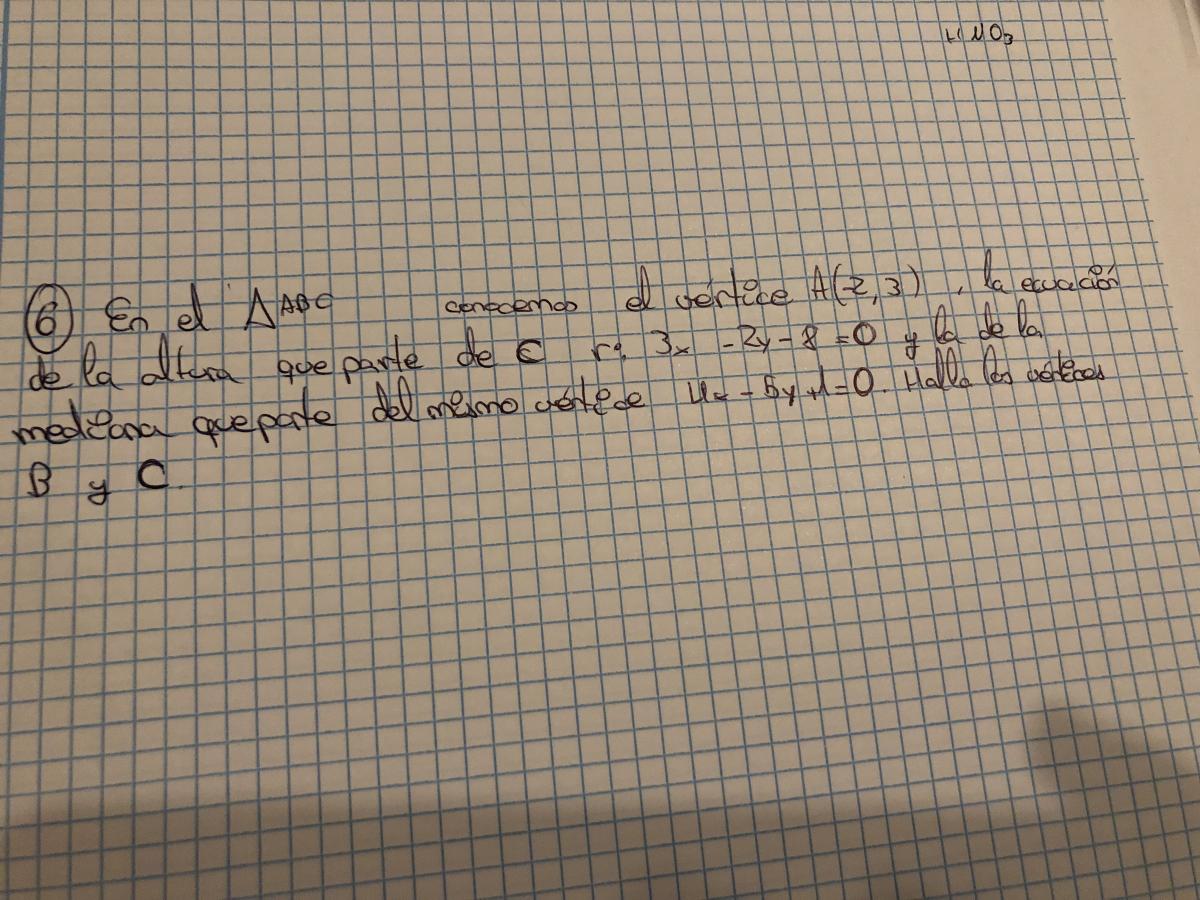 HNO3
6 En el ΔABC conocemos el vértice A(-2,3), la ecuación
de la altura que parte de C r: 3x -2y-8=0 y la de la
mediana que parte del mismo vértice 4x-5y+1=0. Halla los vértices
B y C.